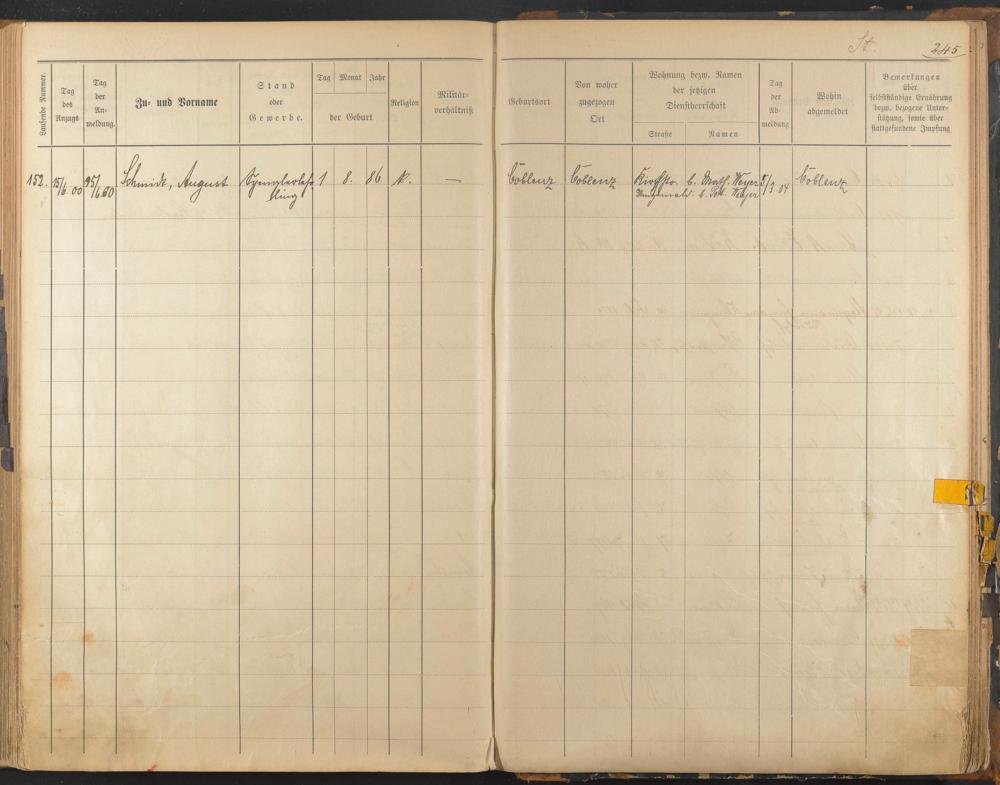 St. 245
Laufende Nummer.
Tag
des
Anzugs
Tag
der
An-
meldung.
Zu- und Vorname
Stand
oder
Gewerbe.
Tag Monat Jahr
der Geburt
Religion
Militär-
verhältniß
Geburtsort
Von woher
zugezogen
Ort
Wohnung bezw. Namen
der jetzigen
Dienstherrschaft
Straße Namen
Tag
der
Ab-
meldung
Wohin
abgemeldet
Bemerkungen
über
selbstständige Ernährung
bezw. bezogene Unter-
stützung, sowie über
stattgefundene Impfung
152. 15/6. 00 Schmidt, August Spenglerlehr 1 8. 86 k. — Coblenz Coblenz Kirchstr. b. Math. Weyer 5/3. 04 Coblenz
ling b. Weyer